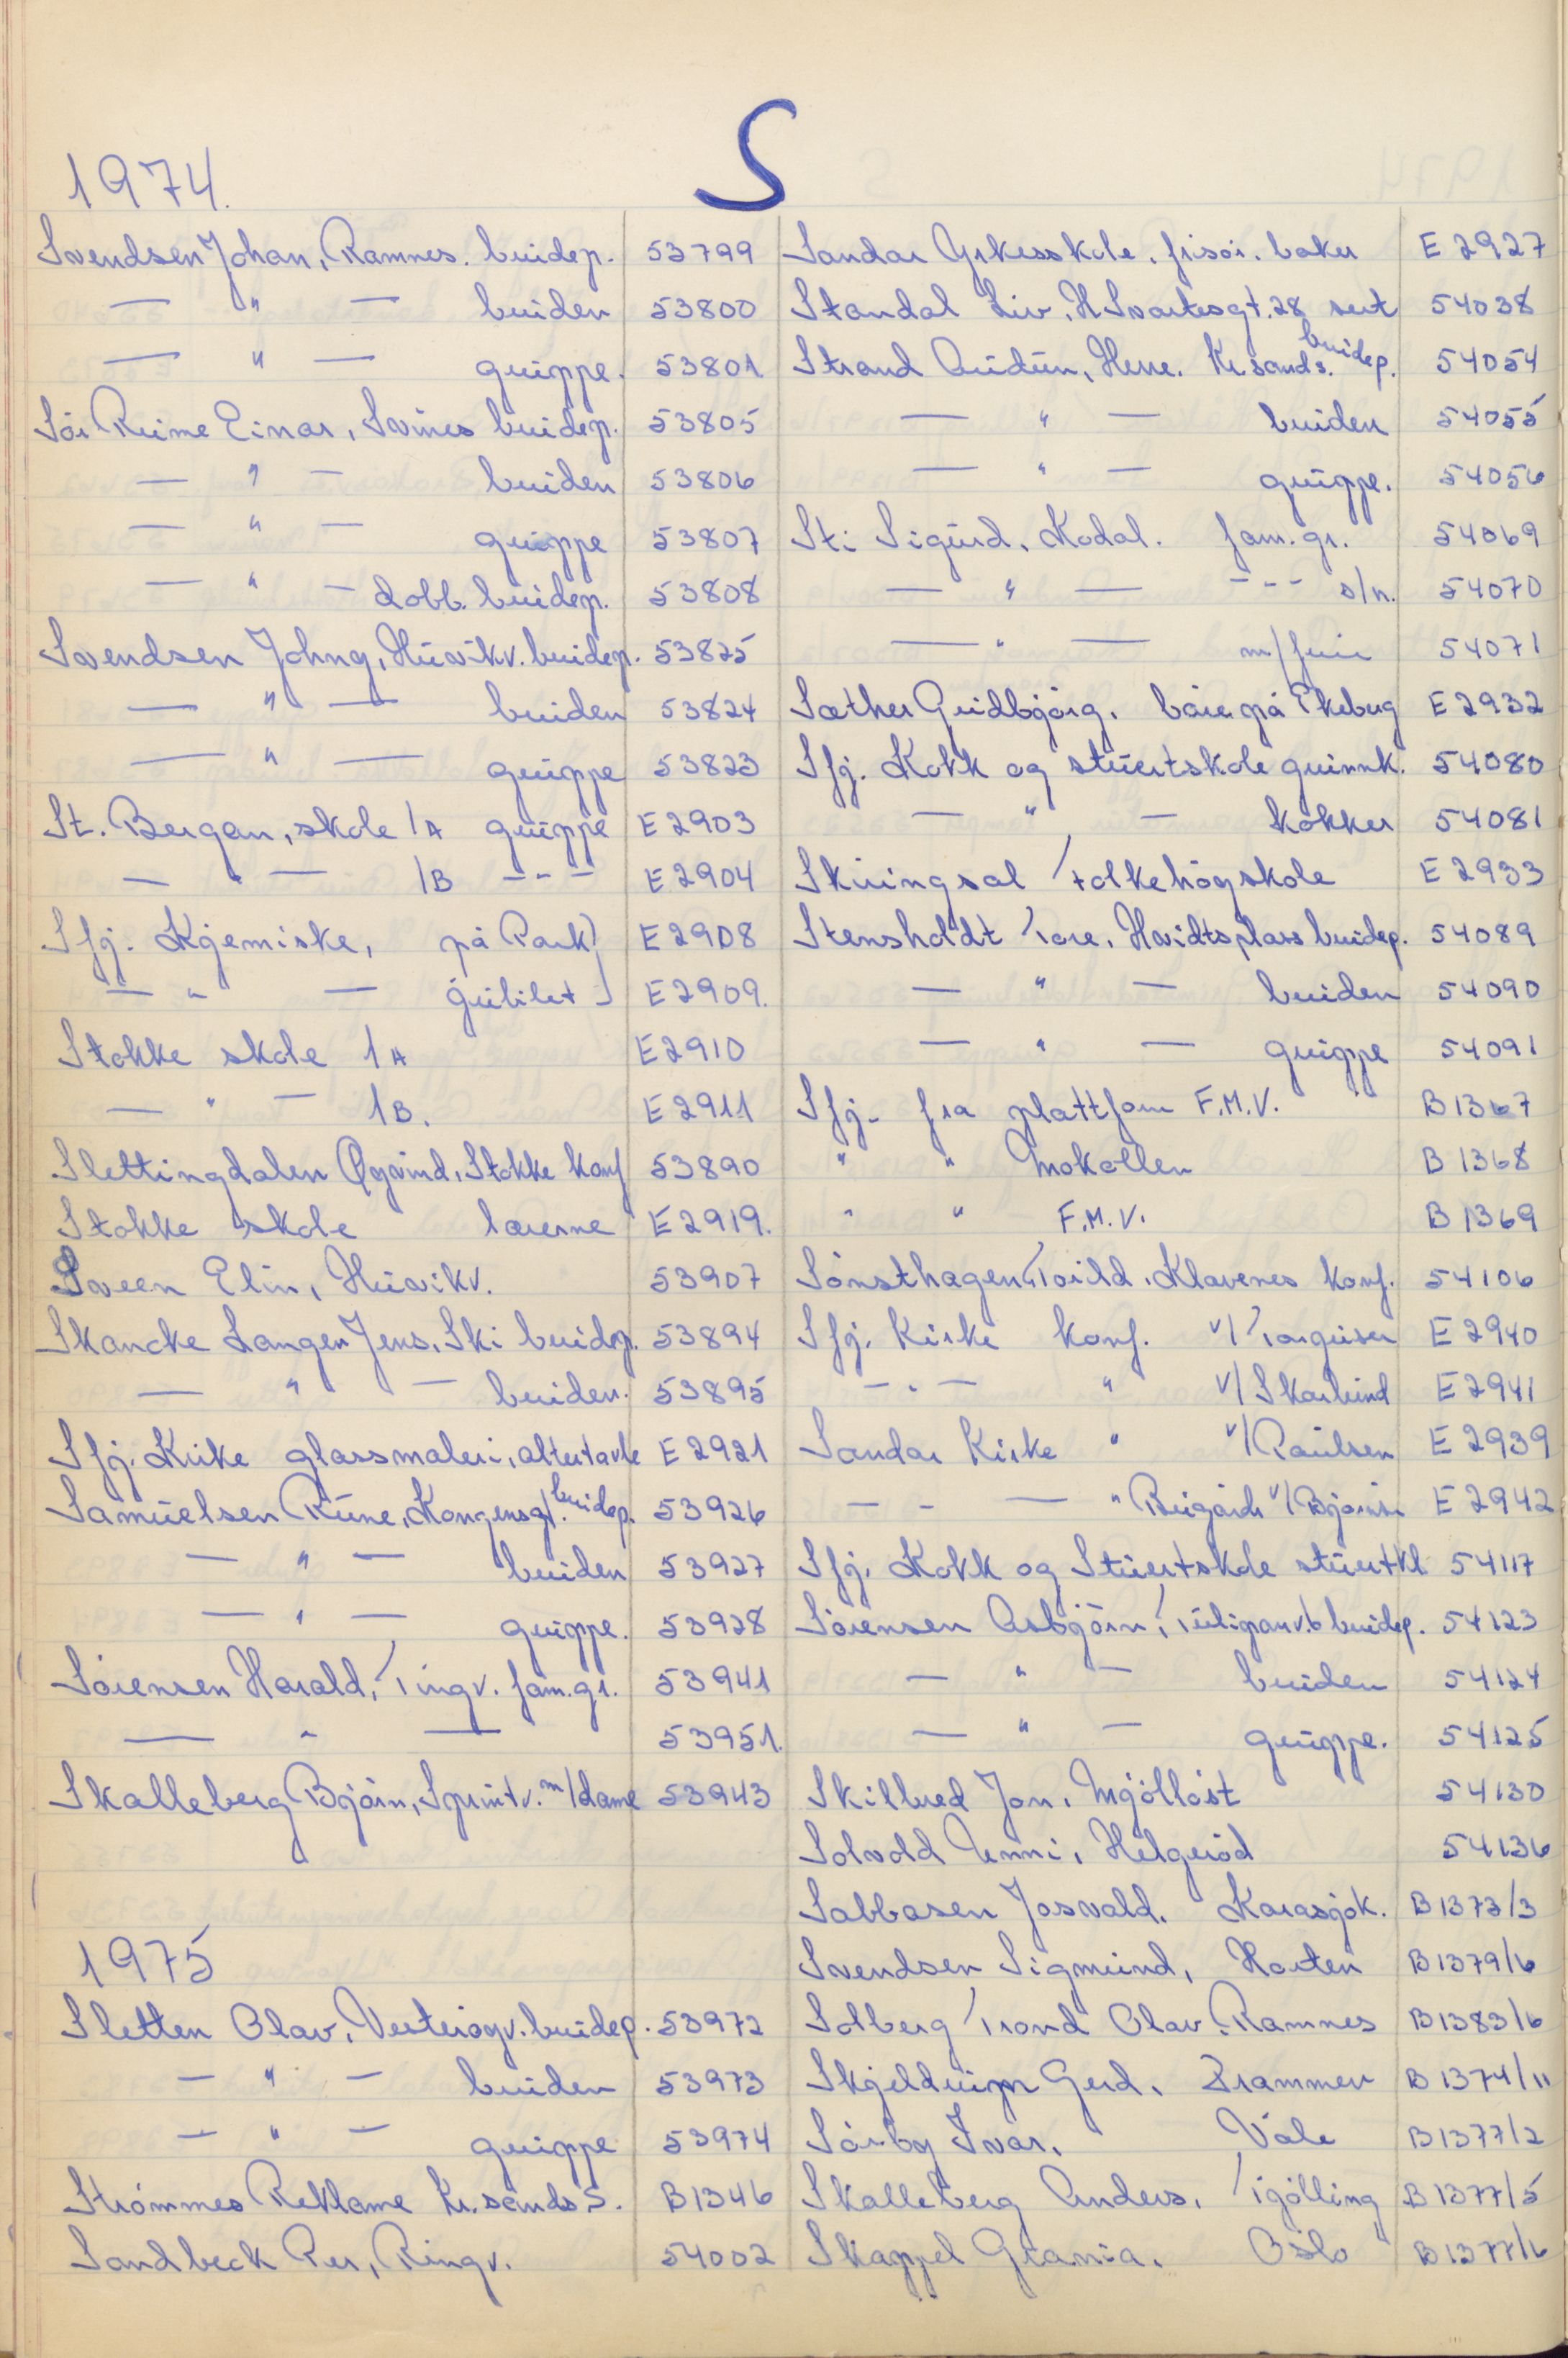 S
1974.
Svendsen Johan, Ramnes. brudep. 53799
— " — bruden 53800
— " — gruppe. 53801
Sør Reime Einar, brudep. 53805
— " — bruden 53806
— " — gruppe 53807
— " — dobb. brudep. 53808
Svendsen Johny, Husvikv. brudep. 53825
— " — bruden 53824
— " — gruppe 53823
St. Bergan, skole 1A gruppe E2903
— " — 1B --- E2904
Sfj. Kjemiske, på Park E2908
— " — jubilet E2909.
Stokke skole 1A E2910
— " — 1B. E2911
Slettingdalen Øyvind, Stokke konf 53890
Stokke skole lærerne E2919.
Sveen Elin, Husvikv. 53907
Skancke Langen Jens, Ski brudep. 53894
— " — bruden. 53895
Sfj. Kirke glassmaleri, altertavle E2921
Samuelsen Rune, Kongensgt. brudep. 53926
— " — bruden 53927
— " — gruppe. 53928
Sørensen Harald, Tingv. fam.gr. 53941
— " — 53951.
Skalleberg Bjørn, m/dame 53943
1975
Sletten Olav, brudep. 53972
— " — bruden 53973
— " — gruppe 53974
Strømmes Reklame Kr.sands S. B1346
Sandbeck Per, Ringv. 54002
Sandar Yrkesskole, frisør. baker E2927
Standal Liv, H Svartesgt. 28 sert 54038
Strand Audun, Herre. Kr.sands. brudep. 54054
— " — bruden 54055
— " — gruppe. 54056
Sti Sigurd, Kodal. fam.gr. 54069
— " — --- s/n. 54070
— " — m/frue 54071
Sæther Gudbjørg, båre på Ekeberg E2932
Sfj. Kokk og stuertskole grunnk. 54080
— " — kokker 54081
Skiringsal Folkehøgskole E2933
Stensholdt Tore, Hvidtsplass brudep. 54089
— " — bruden 54090
— " — gruppe 54091
Sfj. fra plattform F.M.V. B1367
" " Mokollen B1368
" " F.M.V. B1369
Sønsthagen, Torild, Klavenes konf. 54106
Sfj. Kirke konf. v/Torgersen E2940
— " — " v/Skarlund E2941
Sandar Kirke " v/Paulsen E2939
— - — " Bugårds v/ E2942
Sfj. Kokk og Stuertskole stuertkl 54117
Sørensen Asbjørn, Tulipanv.6 brudep. 54123
— " — bruden 54124
— " — gruppe. 54125
Skilbred Jon, Mjølløst 54130
Solvold Unni, Helgerød 54136
Sabbasen Josvald, Karasjok. B1373/3
Svendsen Sigmund, Horten B1379/6
Solberg Trond Olav, Ramnes B1383/6
Gerd, Drammen B1374/11
Sørby Ivar, Våle B1377/2
Skalleberg Anders, Tjølling B1377/5
Skappel Oslo B1377/6